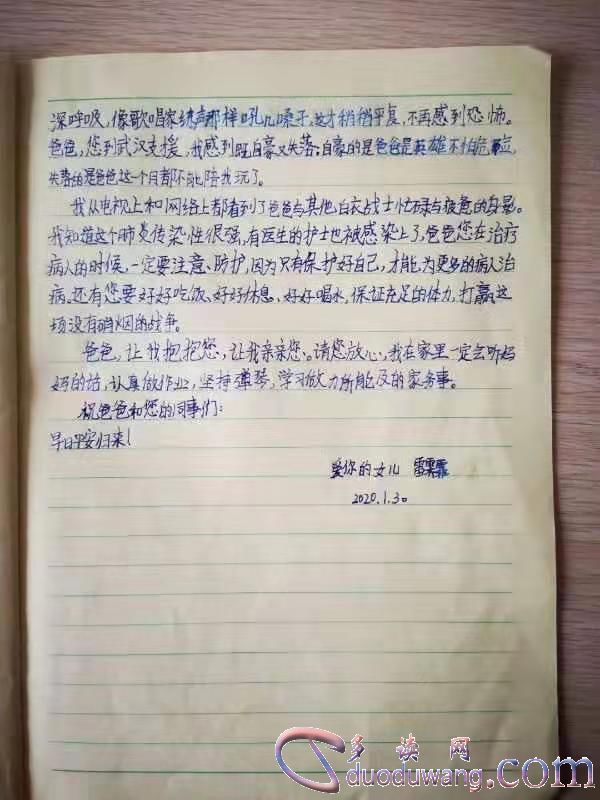 深呼吸，像歌唱家练声那样吼几嗓子，这才稍稍平复，不再感到恐怖。
爸爸，您到武汉支援，我感到既自豪又失落：自豪的是爸爸是英雄不怕危险，
失落的是爸爸这一个月都不能陪我玩了。
我从电视上和网络上都看到了爸爸与其他白衣战士忙碌与疲惫的身影。
我知道这个肺炎传染性很强，有医生的护士也被感染上了，爸爸您在治疗
病人的时候，一定要注意、防护，因为只有保护好自己，才能为更多的病人治
病。还有您要好好吃饭、好好休息、好好喝水，保证充足的体力，打赢这
场没有硝烟的战争。
爸爸，让我抱抱您，让我亲亲您。请您放心，我在家里一定会听妈
妈的话，认真做作业，坚持弹琴，学习做力所能及的家务事。
祝爸爸和您的同事们：
早日平安归来！
爱你的女儿 雷
2020.1.30
多读网
duoduwang.com